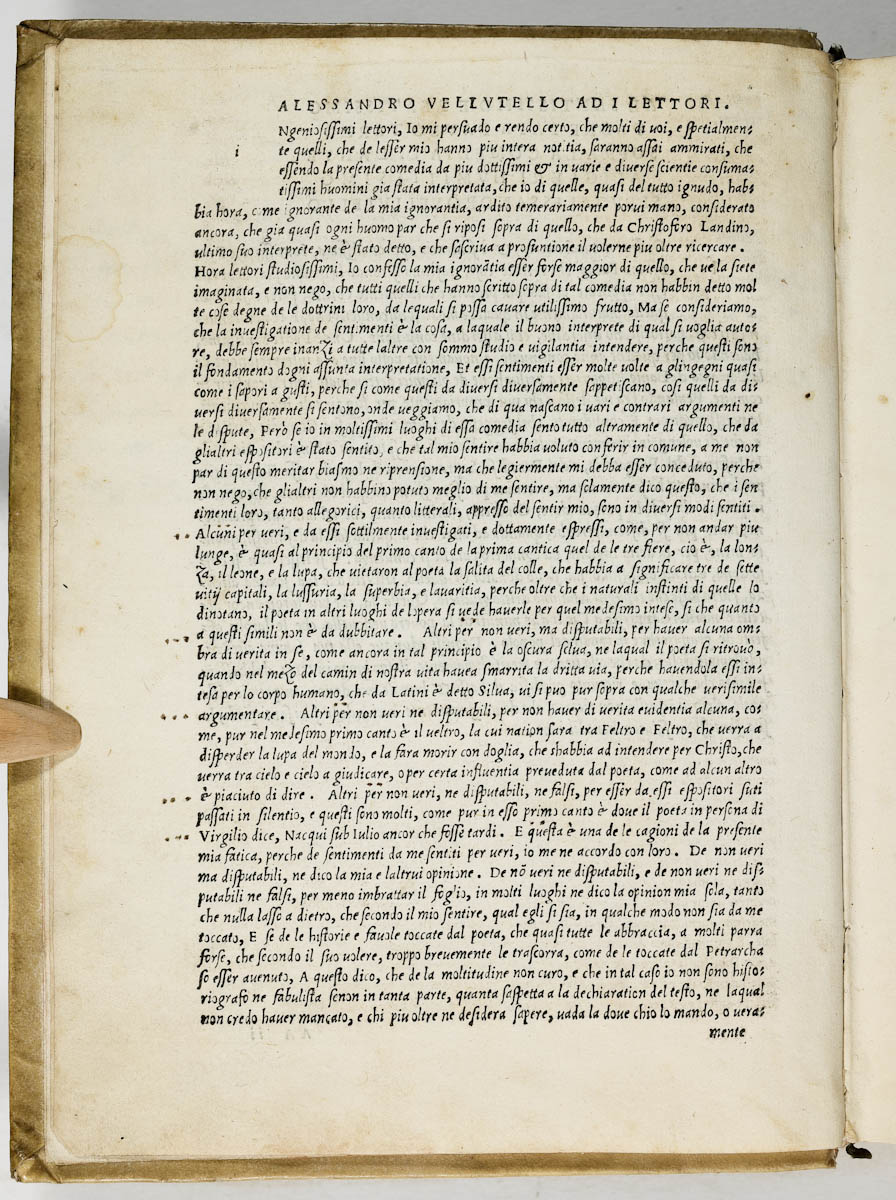 ALESSANDRO VELLVTELLO AD I LETTORI.
i
Ngeniosissimi lettori, Io mi persuado e rendo certo, che molti di uoi, e spetialmen-
te quelli, che de lesser mio hanno piu intera notitia, saranno assai ammirati, che
essendo la presente comedia da piu dottissimi & in uarie e diuerse scientie consuma-
tissimi huomini gia stata interpretata, che io di quelle, quasi del tutto ignudo, hab-
bia hora, come ignorante de la mia ignorantia, ardito temerariamente porui mano, considerato
ancora, che gia quasi ogni huomo par che si riposi sopra di quello, che da Christoforo Landino,
ultimo suo interprete, ne è stato detto, e che sescriua a prosuntione il uolerne piu oltre ricercare.
Hora lettori studiosissimi, Io confesso la mia ignorãtia esser forse maggior di quello, che ue la siete
imaginata, e non nego, che tutti quelli che hanno scritto sopra di tal comedia non habbin detto mol
te cose degne de le dottrini loro, da lequali si possa cauare utilissimo frutto, Ma se consideriamo,
che la inuestigatione de sentimenti è la cosa, a laquale il buono interprete di qual si uoglia auto-
re, debbe sempre inanzi a tutte laltre con sommo studio e uigilantia intendere, perche questi sono
il fondamento dogni assunta interpretatione, Et essi sentimenti esser molte uolte a glingegni quasi
come i sapori a gusti, perche si come questi da diuersi diuersamente sappetiscano, cosi quelli da di-
uersi diuersamente si sentono, onde ueggiamo, che di qua nascano i uari e contrari argumenti ne
le dispute, Però se io in moltissimi luoghi di essa comedia sento tutto altramente di quello, che da
glialtri espositori è stato sentito, e che tal mio sentire habbia uoluto conferir in comune, a me non
par di questo meritar biasmo ne riprensione, ma che legiermente mi debba esser conceduto, perche
non nego, che glialtri non habbino potuto meglio di me sentire, ma solamente dico questo, che i sen
timenti loro, tanto allegorici, quanto litterali, appresso del sentir mio, sono in diuersi modi sentiti.
Alcuni per ueri, e da essi sottilmente inuestigati, e dottamente espressi, come, per non andar piu
lunge, è quasi al principio del primo canto de la prima cantica quel de le tre fiere, cio è, la lon-
za, il leone, e la lupa, che uietaron al poeta la salita del colle, che habbia a significare tre de sette
uitij capitali, la lussuria, la superbia, e lauaritia, perche oltre che i naturali instinti di quelle lo
dinotano, il poeta in altri luoghi de lopera si uede hauerle per quel medesimo intese, si che quanto
a questi simili non è da dubbitare. Altri per non ueri, ma disputabili, per hauer alcuna om-
bra di uerita in se, come ancora in tal principio è la oscura silua, ne laqual il poeta si ritrouò,
quando nel mezo del camin di nostra uita hauea smarrita la dritta uia, perche hauendola essi in-
tesa per lo corpo humano, che da Latini è detto Silua, ui si puo pur sopra con qualche uerisimile
argumentare. Altri per non ueri ne disputabili, per non hauer di uerita euidentia alcuna, co-
me, pur nel medesimo primo canto è il ueltro, la cui nation sara tra Feltro e Feltro, che uerra a
disperder la lupa del mondo, e la fara morir con doglia, che shabbia ad intendere per Christo, che
uerra tra cielo e cielo a giudicare, o per certa influentia preueduta dal poeta, come ad alcun altro
è piaciuto di dire. Altri per non ueri, ne disputabili, ne falsi, per esser da essi espositori suti
passati in silentio, e questi sono molti, come pur in esso primo canto è doue il poeta in persona di
Virgilio dice, Nacqui sub Iulio ancor che fosse tardi. E questa è una de le cagioni de la presente
mia fatica, perche de sentimenti da me sentiti per ueri, io me ne accordo con loro. De non ueri
ma disputabili, ne dico la mia e laltrui opinione. De nõ ueri ne disputabili, e de non ueri ne dis-
putabili ne falsi, per meno imbrattar il foglio, in molti luoghi ne dico la opinion mia sola, tanto
che nulla lasso a dietro, che secondo il mio sentire, qual egli si sia, in qualche modo non sia da me
toccato, E se de le historie e fauole toccate dal poeta, che quasi tutte le abbraccia, a molti parra
forse, che secondo il suo uolere, troppo breuemente le trascorra, come de le toccate dal Petrarcha
so esser auenuto, A questo dico, che de la moltitudine non curo, e che in tal caso io non sono histo-
riografo ne fabulista senon in tanta parte, quanta saspetta a la dechiaration del testo, ne laqual
non credo hauer mancato, e chi piu oltre ne desidera sapere, uada la doue chio lo mando, o uera-
mente